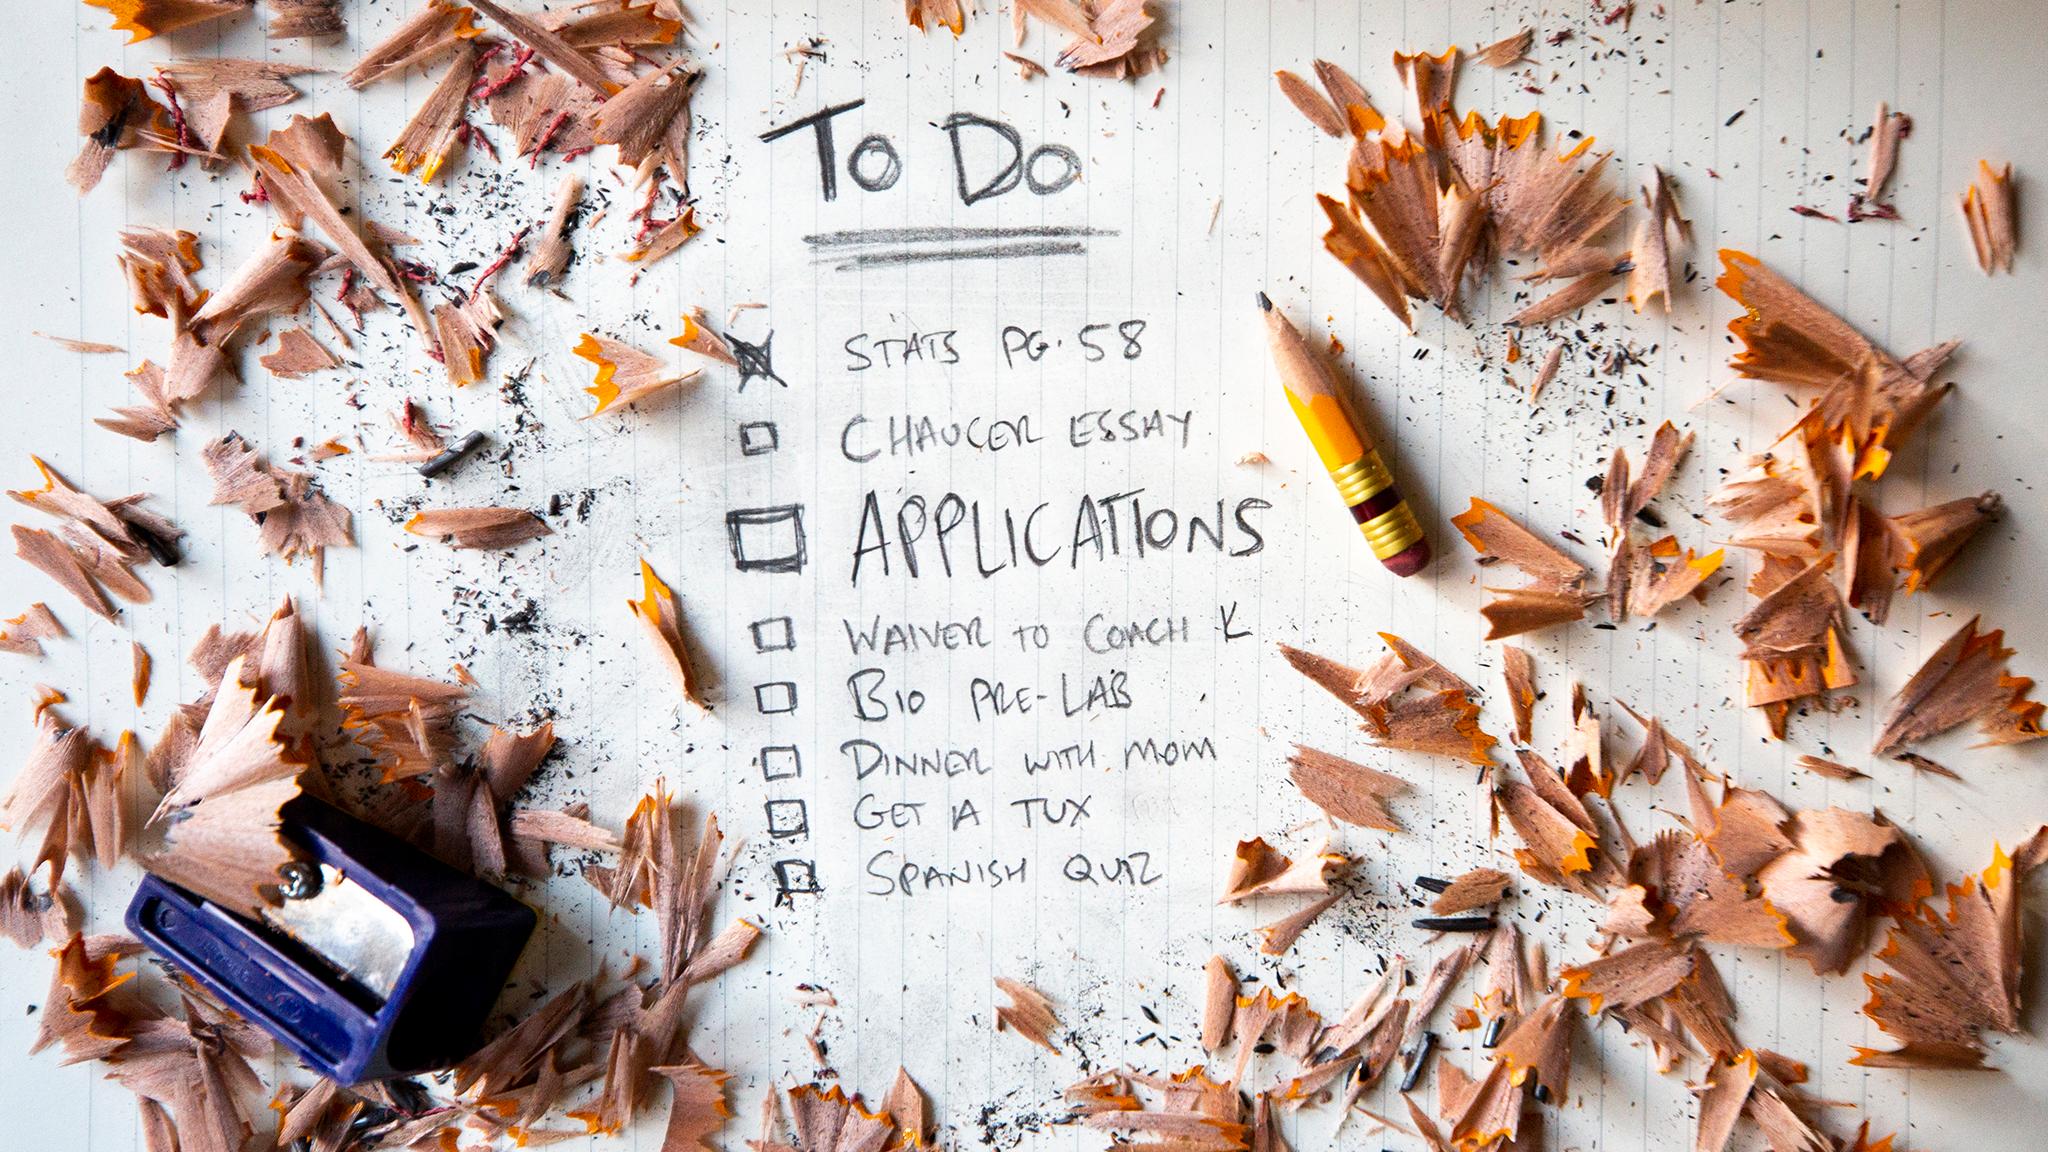 To Do
STATS PG. 58
CHAUCER ESSAY
APPLICATIONS
WAIVER TO COACH K
BIO PRE-LAB
DINNER WITH MOM
GET A TUX
SPANISH QUIZ